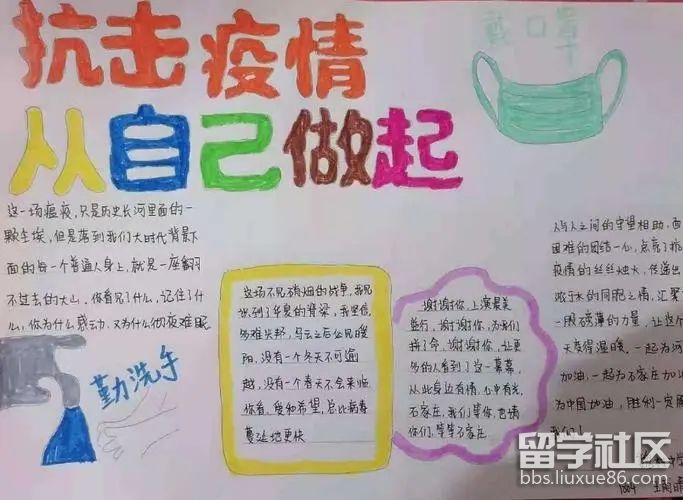 抗击疫情
从自己做起
戴口罩
这一场瘟疫,只是历史长河里面的一
颗尘埃,但是落到我们大时代背景下
面的每一个普通人身上,就是一座翻
不过去的大山,你看见了什么,记住了什
么,你为什么感动,又为什么彻夜难眠
勤洗手
这场不见硝烟的战争,我见
识到了华夏的脊梁,我坚信,
多难兴邦,乌云之后必见暖
阳,没有一个冬天不可逾
越,没有一个春天不会来临
你看,爱和希望,总比病毒
蔓延地更快
谢谢你,上演最美
逆行,谢谢你,为我们
拼了命,谢谢你,让更
多的人看到了这一幕幕,
从此身边有情,心中有光,
石家庄,我们等你,也请
你们,等等石家庄
人与人之间的守望相助,面
困难的团结一心,点亮了抗
疫情的丝丝烛火,传递出
浓于水的同胞之情,汇聚
一股磅薄的力量,让这个
天变得温暖,一起为河
加油,一起为石家庄加
为中国加油,胜利一定属
我们!
中学
留学社区
bbs.liuxue86.com